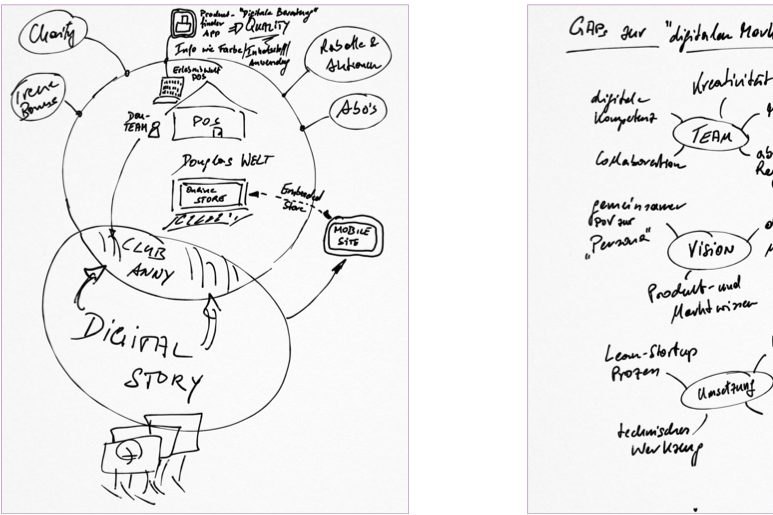 Charity
Product-
finder
APP
"Digitale Beratung"
⇒ QUALITY
Info wie Farbe/Inhaltstoff/
Anwendung
Erlebniswelt
POS
Rabatte &
Aktionen
Bonus
Abo's
TEAM
POS
Douglas WELT
ONLINE
STORE
Embedded
Store
MOBILE
SITE
CLUB
ANNY
DIGITAL
STORY
GAPs zur "digitalen
Kreativität
digitale
Kompetenz
TEAM
Collaboration
gemeinsamer
POV zur
"Persona"
VISION
Produkt- und
Marktwissen
Lean-Startup
Prozess
Umsetzung
technisches
Werkzeug